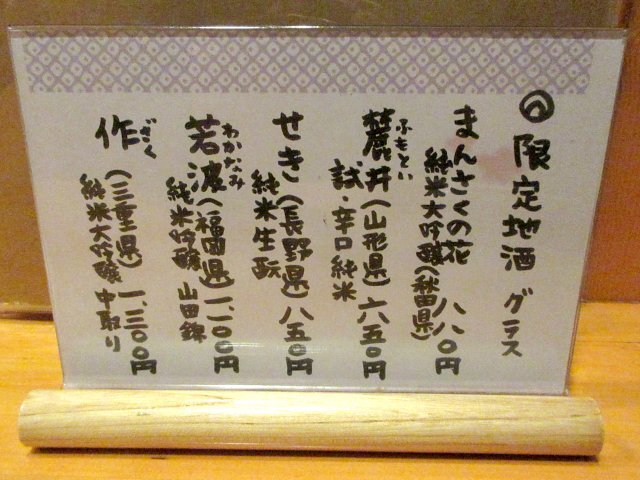 限定地酒 グラス
まんさくの花 八八〇円
純米大吟醸(秋田県)
麓井(山形県)六五〇円
ふもとい
試・辛口純米
せき(長野県)八五〇円
純米生酛
若波(福岡県)一、一〇〇円
わかなみ
純米吟醸 山田錦
作(三重県)一、三〇〇円
ざく
純米大吟醸 中取り